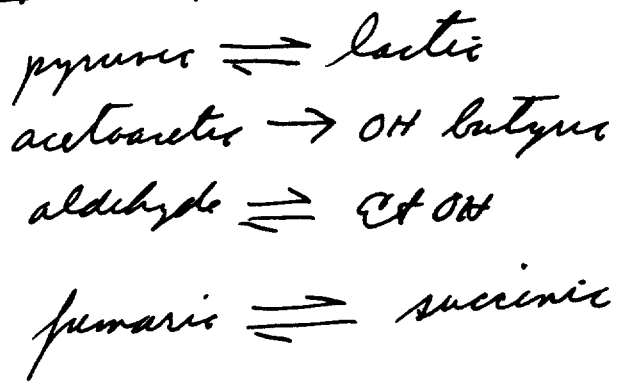 pyruvic ⇌ lactic
acetoacetic → OH butyric
aldehyde ⇌ EtOH
fumaric ⇌ succinic